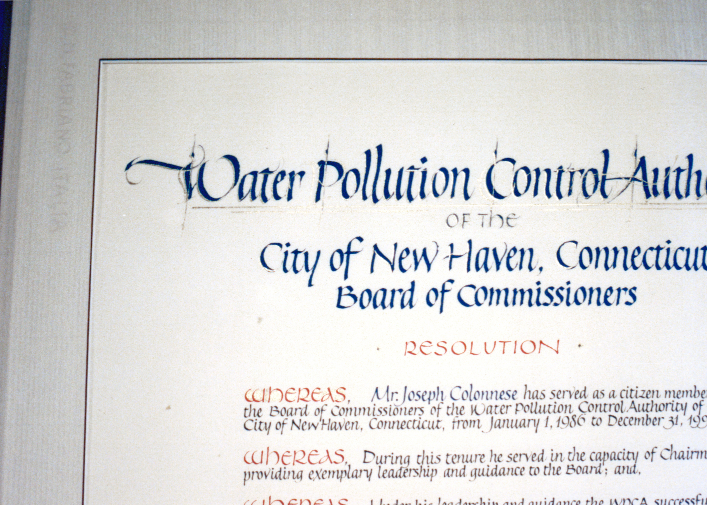 Water Pollution Control Autho
OF THE
City of New Haven, Connecticut
Board of Commissioners
· RESOLUTION ·
WHEREAS, Mr. Joseph Colonnese has served as a citizen membe
the Board of Commissioners of the Water Pollution Control Authority of
City of New Haven, Connecticut, from January 1, 1986 to December 31, 199
WHEREAS, During this tenure he served in the capacity of Chairm
providing exemplary leadership and guidance to the Board; and,
WHEREAS, Under his leadership and guidance the WPCA successfu